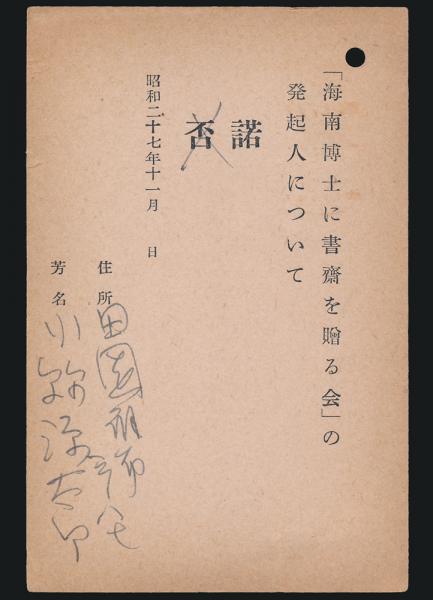 「海南博士に書齋を贈る会」の
発起人について
諾
否
昭和二十七年十一月　日
住所 田園調布
芳名 小絲源太郎